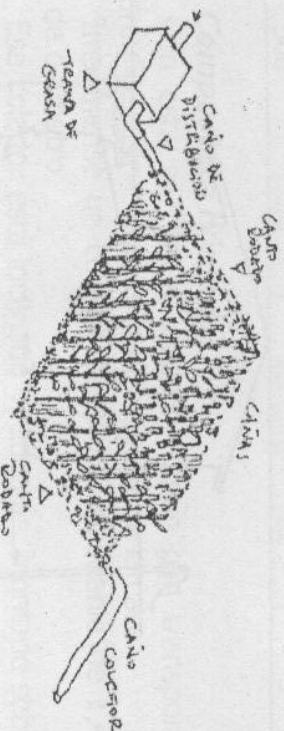 TRAMPA DE
GRASA
CAÑO DE
DISTRIBUCION
CANTO
RODADO
CAÑAS
CANTO
RODADO
CAÑO
COLECTOR